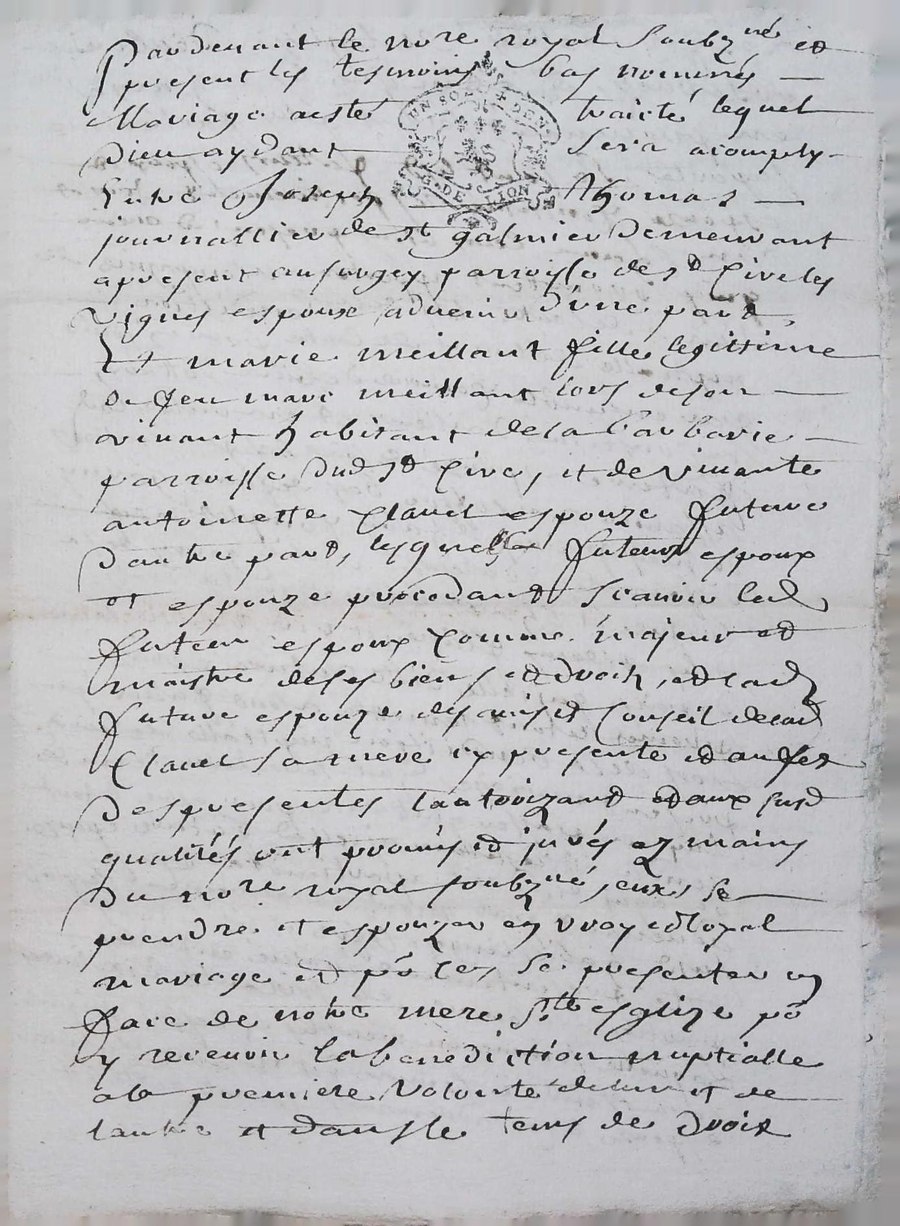 Pardevant le no.re royal soubz.né et
present les tesmoins bas nommés
UN SOL DEN
G. DE LION
Mariage a esté traicté lequel
Dieu aydant sera acomply
Entre Joseph Thomas
journallier de st galmier Demeurant
apresent au surgey parroisse de st Cire les
vignes espoux advenir d'une part
Et marie meillant fille legittime
de feu marc meillant lors de son
vivant habitant de la barbarie
parroisse dud st Cire, et de vivante
antoinette Clavel espouze future
d'autre part, lesquelles futeurs espoux
et espouze procedant scavoir led
futeur espoux comme majeur et
maistre de ses biens et droits, et lad
future espouze de conseil de lad
Clavel sa mere icy presente et
Des presentes l'autorizant et aux susd
qualités ont promis et jurés ez mains
du no.re royal soubz.né, eux se
prendre et espouzer en vray et loyal
mariage et po ce se presenter en
face de notre mere s.te esglize po
y recevoir la benediction nuptialle
a la premiere volonté de l'un et de
l'autre et dans le tems de droit